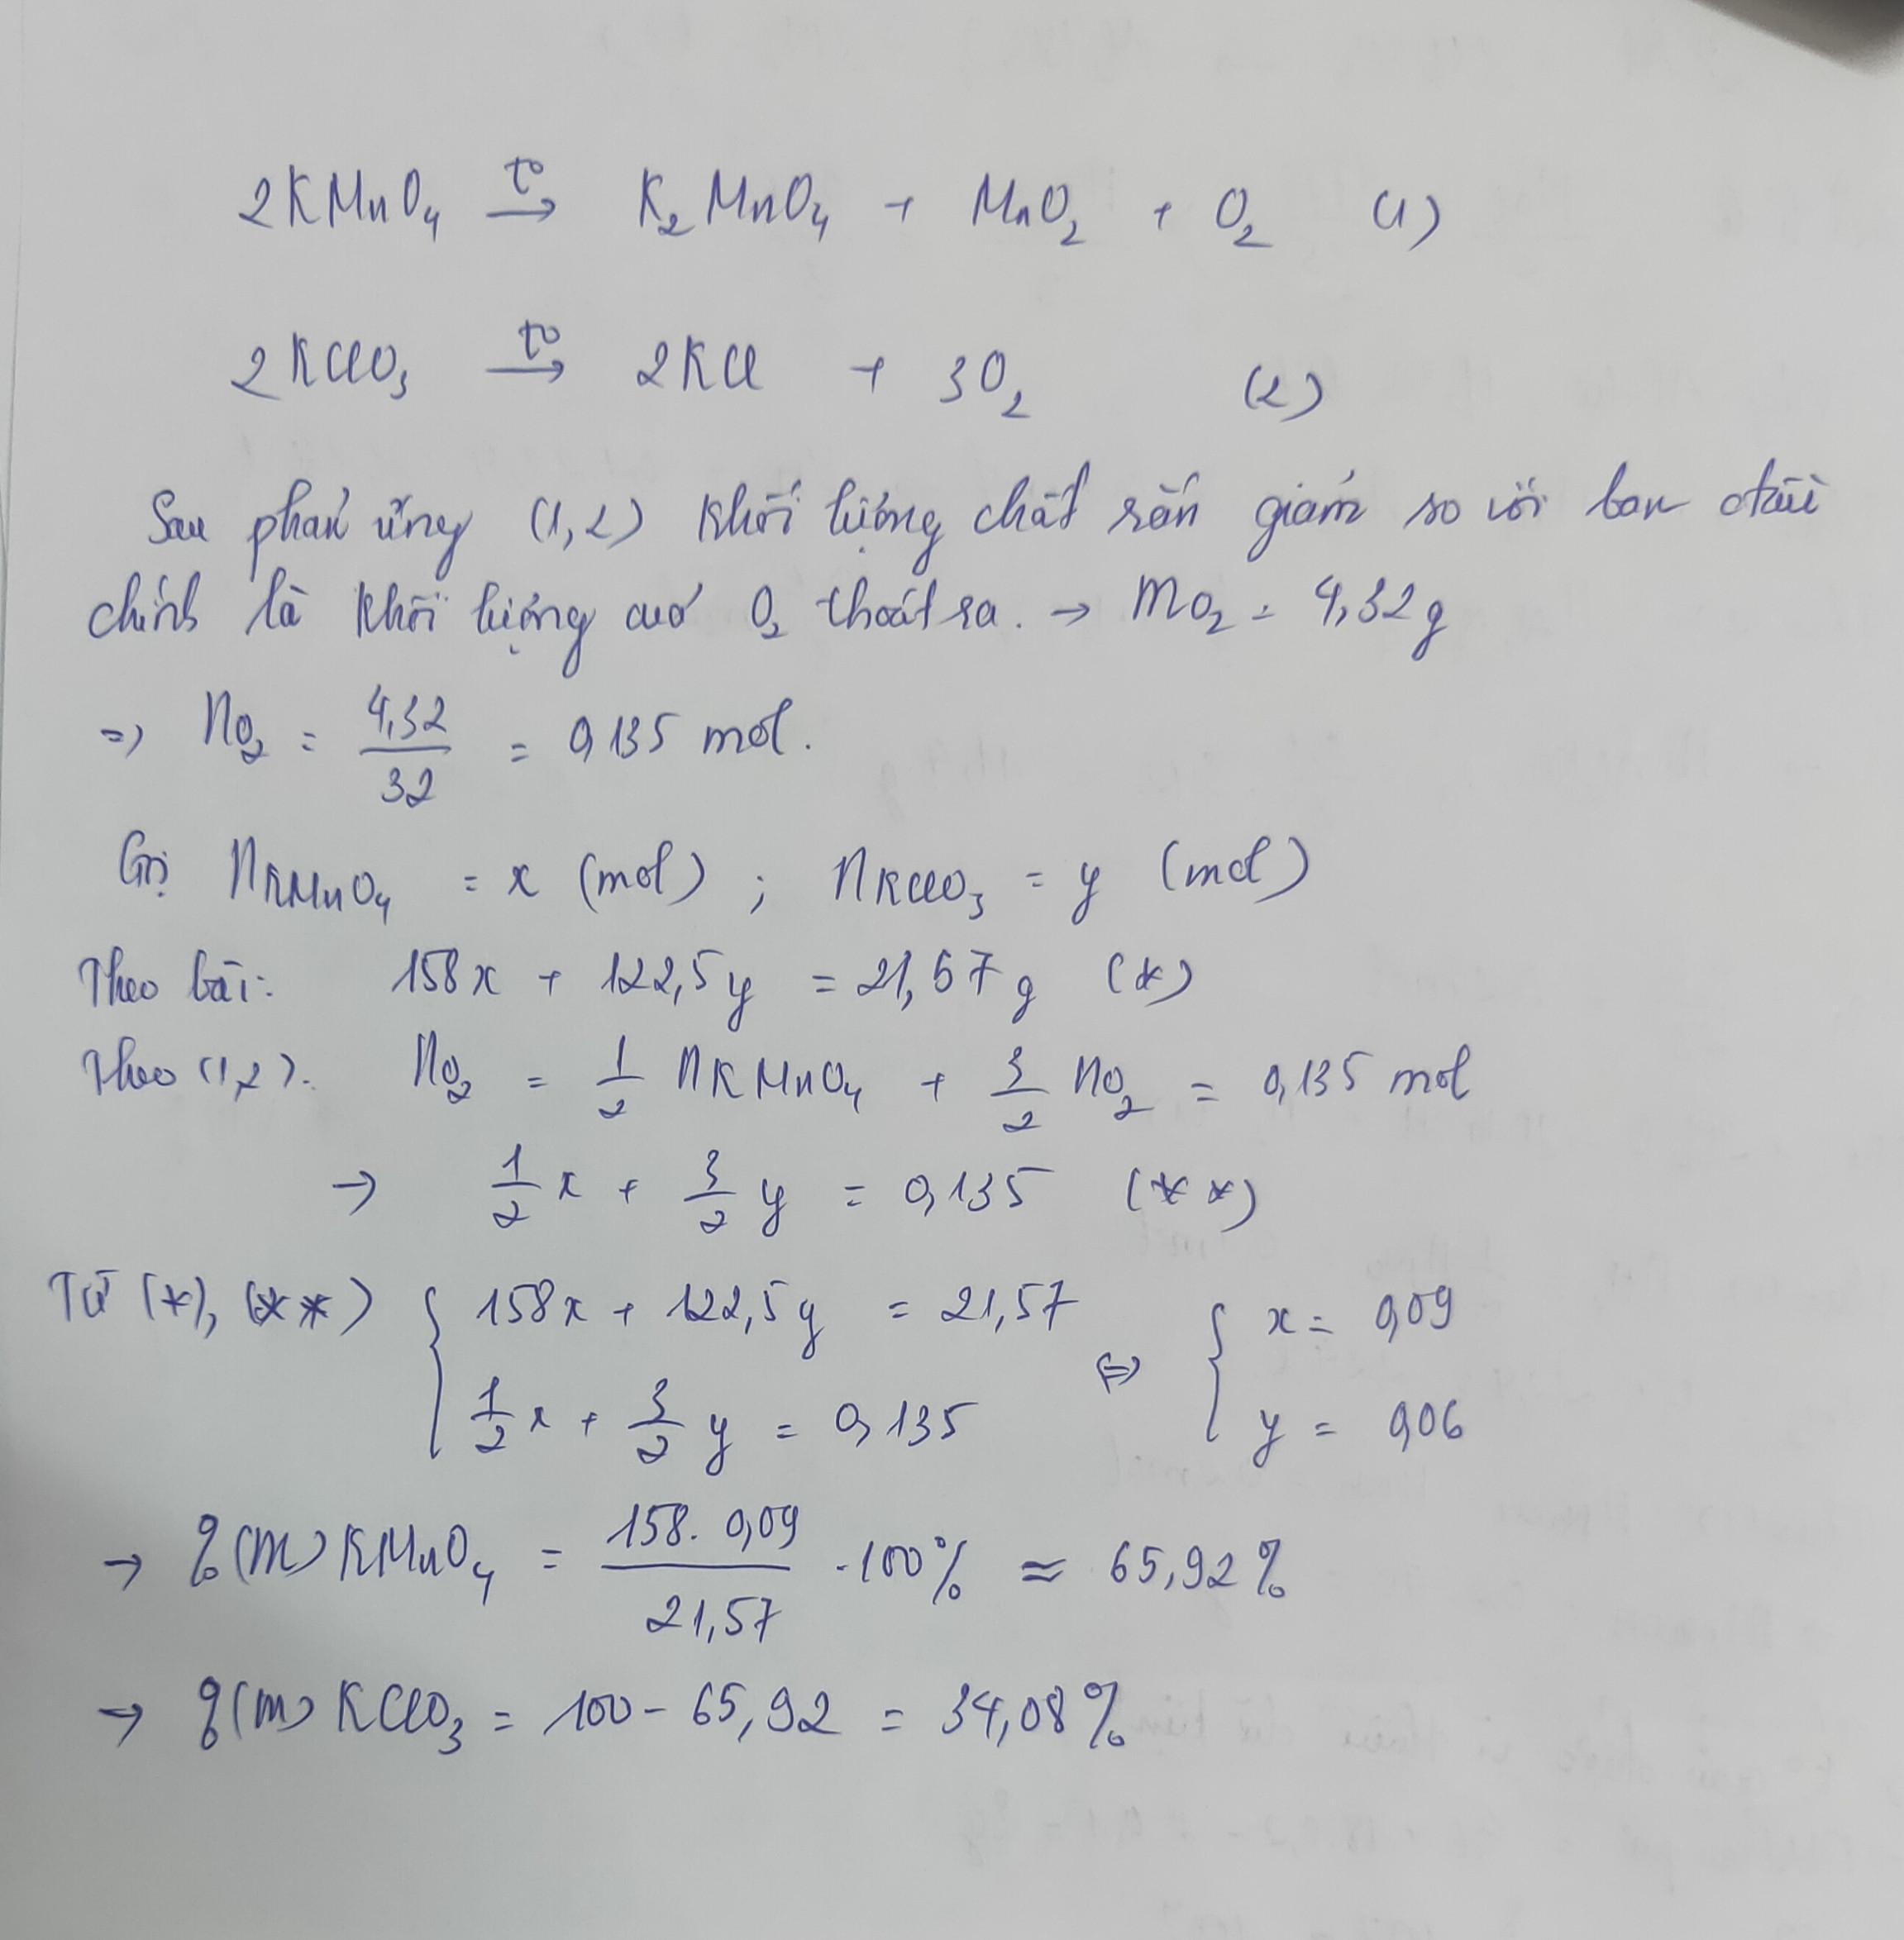 2KMnO₄ –t°→ K₂MnO₄ + MnO₂ + O₂ (1)
2KClO₃ –t°→ 2KCl + 3O₂ (2)
Sau phản ứng (1,2) khối lượng chất rắn giảm so với ban đầu
chính là khối lượng của O₂ thoát ra. → mO₂ = 4,32g
=> nO₂ = 4,32/32 = 0,135 mol.
Gọi nKMnO₄ = x (mol) ; nKClO₃ = y (mol)
Theo bài: 158x + 122,5y = 21,57g (*)
Theo (1,2): nO₂ = 1/2 nKMnO₄ + 3/2 nO₂ = 0,135 mol
→ 1/2 x + 3/2 y = 0,135 (**)
Từ (*), (**) { 158x + 122,5y = 21,57 ⇔ { x = 0,09
1/2 x + 3/2 y = 0,135 y = 0,06
→ %(m) KMnO₄ = 158. 0,09/21,57 .100% ≈ 65,92%
→ %(m) KClO₃ = 100 - 65,92 = 34,08%